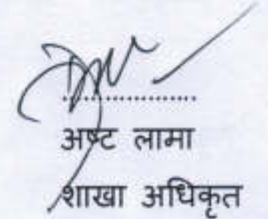 ..................
अष्ट लामा
शाखा अधिकृत